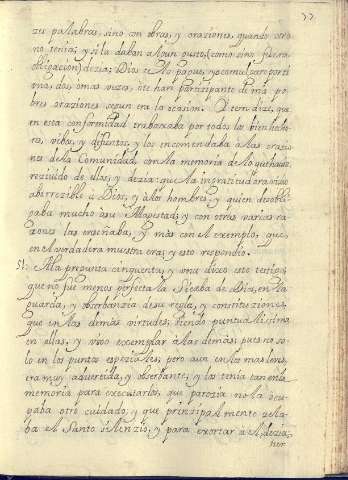 77
zu palabras, sino con obras, y oraziones, quando otra
no tenia; y si la daban algun gusto, (como sino fuera
obligazion) dezia: Dios se lo pague, y
una, dos, o mas vezes, de mis po
bres oraziones segun en la ocasion. Iten dize, que
en esta conformidad trabaxaba por todos los bienhecho
res, vibos, y difuntos; y los encomendaba a las orazio
nes de la Comunidad, con la memoria de lo que havian
rezivido de ellos; y dezia: que la ingratitud era vizio
aborrezible a Dios, y a los hombres, y quien desobli
gaba mucho a su Magestad; y con otras varias ra
zones las enseñaba, y mas con el exemplo, que
en el verdadera muestra era; y esto respondio.
51. A la pregunta cinquenta, y una dixo este testigo,
que no fue menos perfecta la Sierba de Dios, en la
guarda, y obserbanzia de su regla, y constituziones,
que en las demas virtudes; siendo puntualissima
en ellas, y vivo exemplar a las demas; pues no so
lo en los puntos espeziales, pero aun en los mas leves,
era muy advertida, y obserbante; y los tenia tan en la
memoria para executarlos, que parezia no la ocu
paba otro cuidado, y que prinzipalmente zela
ba el Santo silenzio, y para exortar a el, dezia,
her